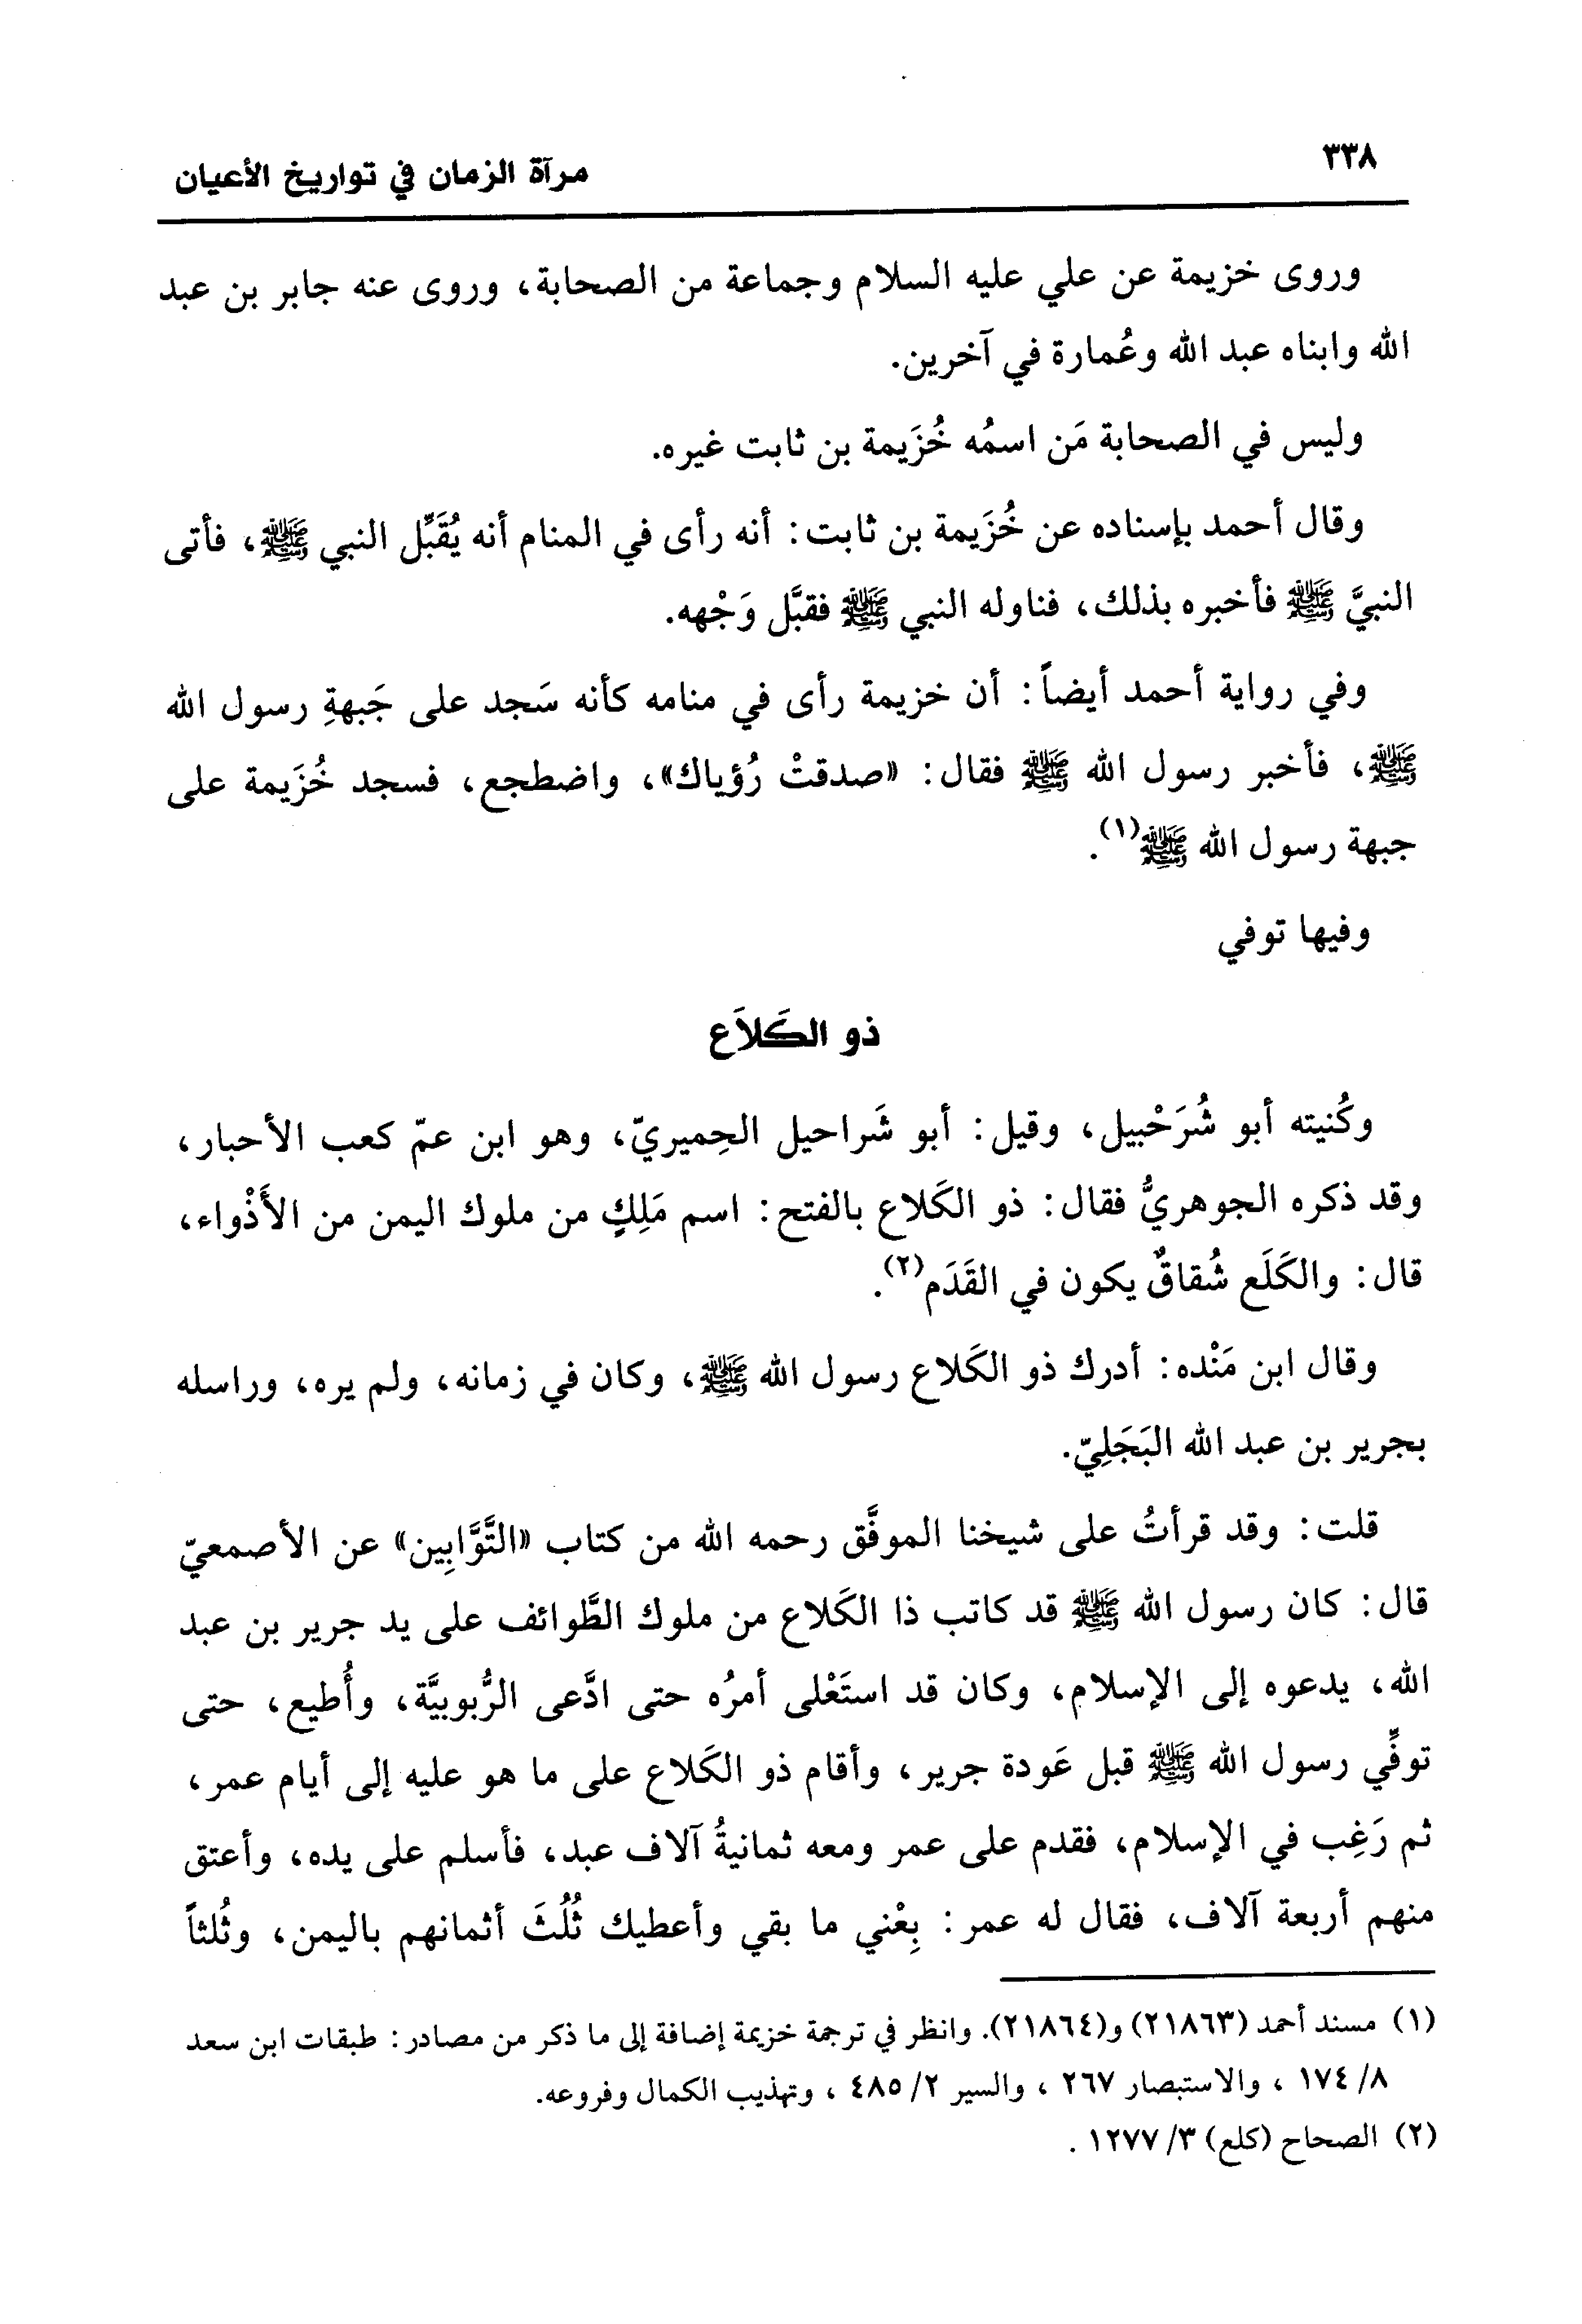 ٣٣٨
مرآة الزمان في تواريخ الأعيان
وروى خزيمة عن علي عليه السلام وجماعة من الصحابة، وروى عنه جابر بن عبد
الله وابناه عبد الله وعُمارة في آخرين.
وليس في الصحابة مَن اسمُه خُزَيمة بن ثابت غيره.
وقال أحمد بإسناده عن خُزَيمة بن ثابت: أنه رأى في المنام أنه يُقَبِّل النبي ﷺ، فأتى
النبيَّ ﷺ فأخبره بذلك، فناوله النبي ﷺ فقبَّل وَجْهه.
وفي رواية أحمد أيضاً: أن خزيمة رأى في منامه كأنه سَجد على جَبهةِ رسول الله
ﷺ، فأخبر رسول الله ﷺ فقال: «صدقتْ رُؤياك»، واضطجع، فسجد خُزَيمة على
جبهة رسول الله ﷺ(١).
وفيها توفي
ذو الكَلاَع
وكُنيته أبو شُرَحْبيل، وقيل: أبو شَراحيل الحِميريّ، وهو ابن عمّ كعب الأحبار،
وقد ذكره الجوهريُّ فقال: ذو الكَلاع بالفتح: اسم مَلِكٍ من ملوك اليمن من الأَذْواء،
قال: والكَلَع شُقاقٌ يكون في القَدَم(٢).
وقال ابن مَنْده: أدرك ذو الكَلاع رسول الله ﷺ، وكان في زمانه، ولم يره، وراسله
بجرير بن عبد الله البَجَلِيّ.
قلت: وقد قرأتُ على شيخنا الموفَّق رحمه الله من كتاب «التَّوَّابِين» عن الأصمعيّ
قال: كان رسول الله ﷺ قد كاتب ذا الكَلاع من ملوك الطَّوائف على يد جرير بن عبد
الله، يدعوه إلى الإسلام، وكان قد استَعْلى أمرُه حتى ادَّعى الرُّبوبيَّة، وأُطيع، حتى
توفِّي رسول الله ﷺ قبل عَودة جرير، وأقام ذو الكَلاع على ما هو عليه إلى أيام عمر،
ثم رَغِب في الإسلام، فقدم على عمر ومعه ثمانيةُ آلاف عبد، فأسلم على يده، وأعتق
منهم أربعة آلاف، فقال له عمر: بِعْني ما بقي وأعطيك ثُلُثَ أثمانهم باليمن، وثُلثاً
(١) مسند أحمد (٢١٨٦٣) و(٢١٨٦٤). وانظر في ترجمة خزيمة إضافة إلى ما ذكر من مصادر: طبقات ابن سعد
٨/ ١٧٤ ، والاستبصار ٢٦٧ ، والسير ٢/ ٤٨٥ ، وتهذيب الكمال وفروعه.
(٢) الصحاح (كلع) ٣/ ١٢٧٧ .